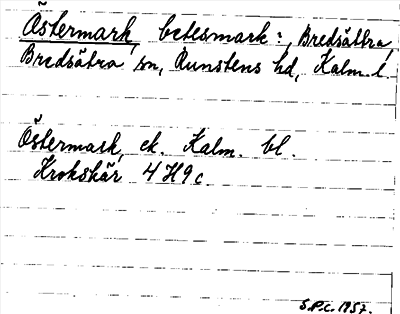 Östermark, betesmark:, Bredsättra,
Bredsätra sn, Runstens hd, Kalm. l.
Östermark, ek. Kalm. bl.
Krokskär 4H9c
S.P.C. 1957.